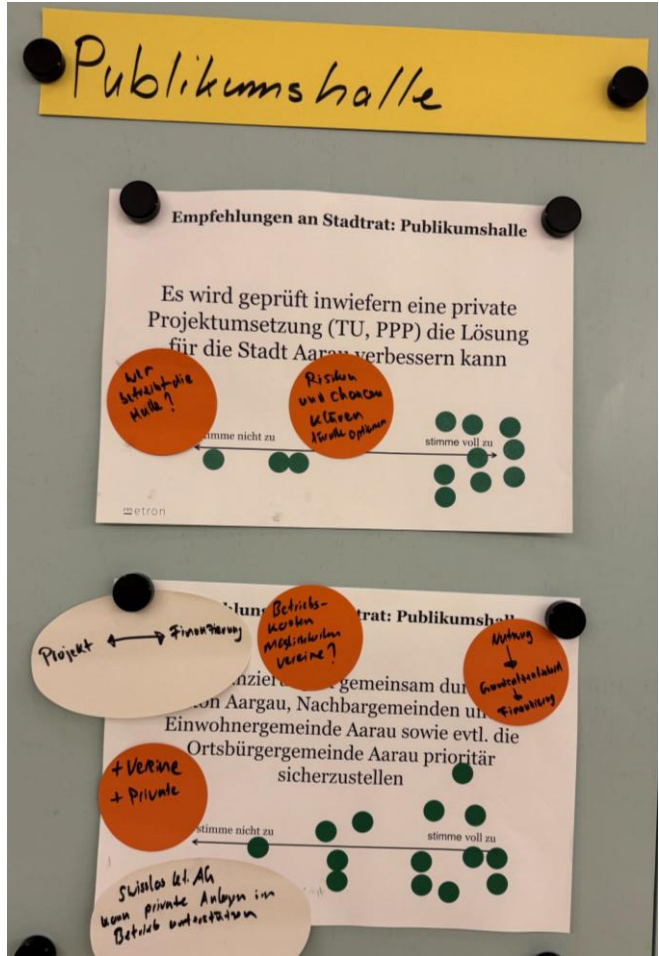 Publikumshalle
Empfehlungen an Stadtrat: Publikumshalle
Es wird geprüft inwiefern eine private
Projektumsetzung (TU, PPP) die Lösung
für die Stadt Aarau verbessern kann
Wer
betreibt die
Halle?
Risiken
und Chancen
klären
Optionen
stimme nicht zu
stimme voll zu
metron
Projekt ↔ Finanzierung
Betriebs-
kosten
Vereine?
trat: Publikumshall
Nutzung
↓
↓
Finanzierung
gemeinsam du
on Aargau, Nachbargemeinden un
Einwohnergemeinde Aarau sowie evtl. die
Ortsbürgergemeinde Aarau prioritär
sicherzustellen
+ Vereine
+ Private
stimme nicht zu
stimme voll zu
Swisslos Kt. AG
kann private Anlagen im
Betrieb unterstützen